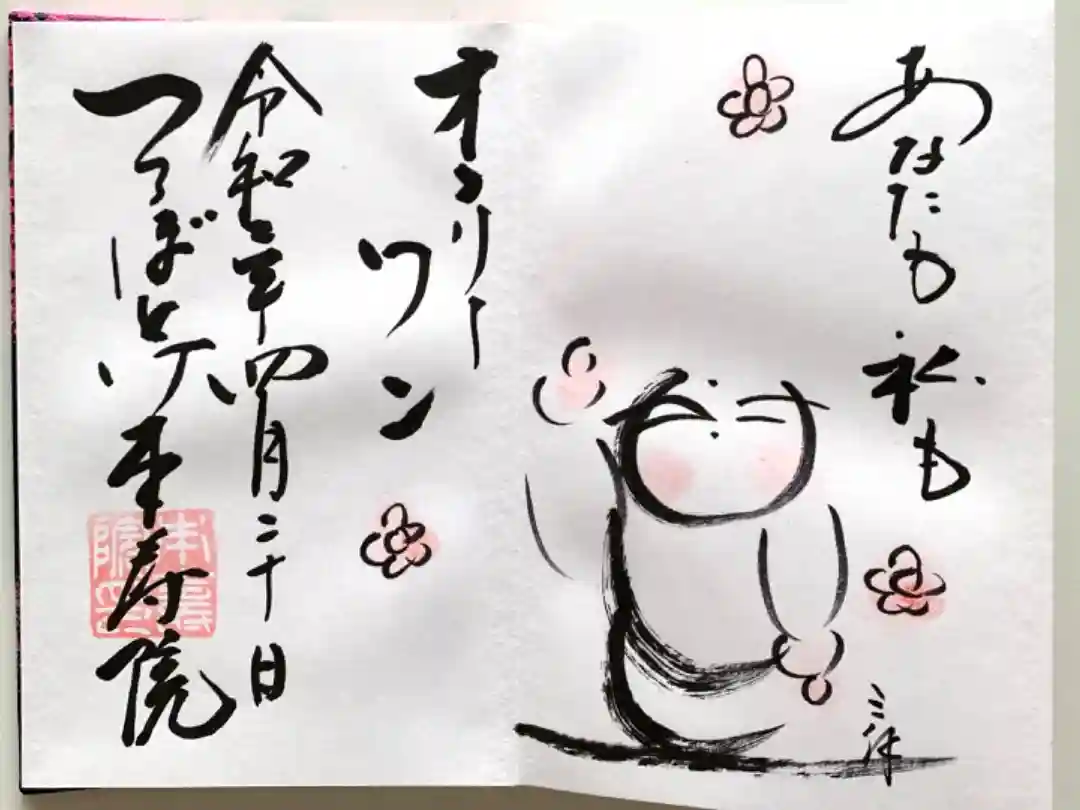 あなたも
私も
オンリー
ワン
令和二年四月二十日
つくば
本寿院